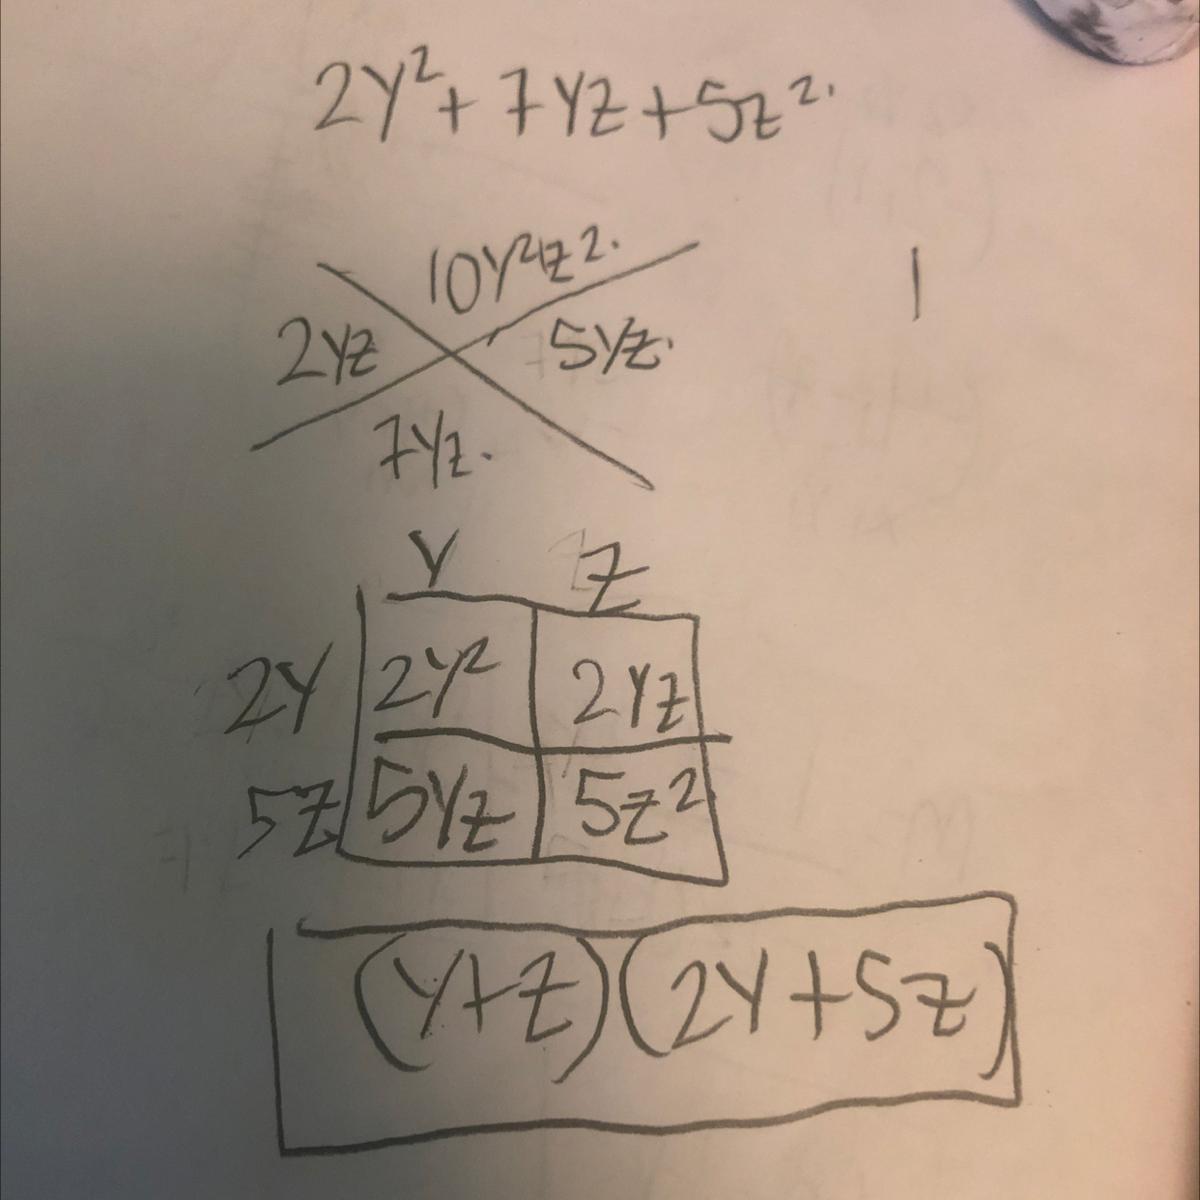 2Y² + 7YZ + 5Z².
10Y²Z².
2YZ 5YZ.
7YZ.
1
Y Z
2Y 2Y² 2YZ
5Z 5YZ 5Z²
(Y+Z)(2Y+5Z)